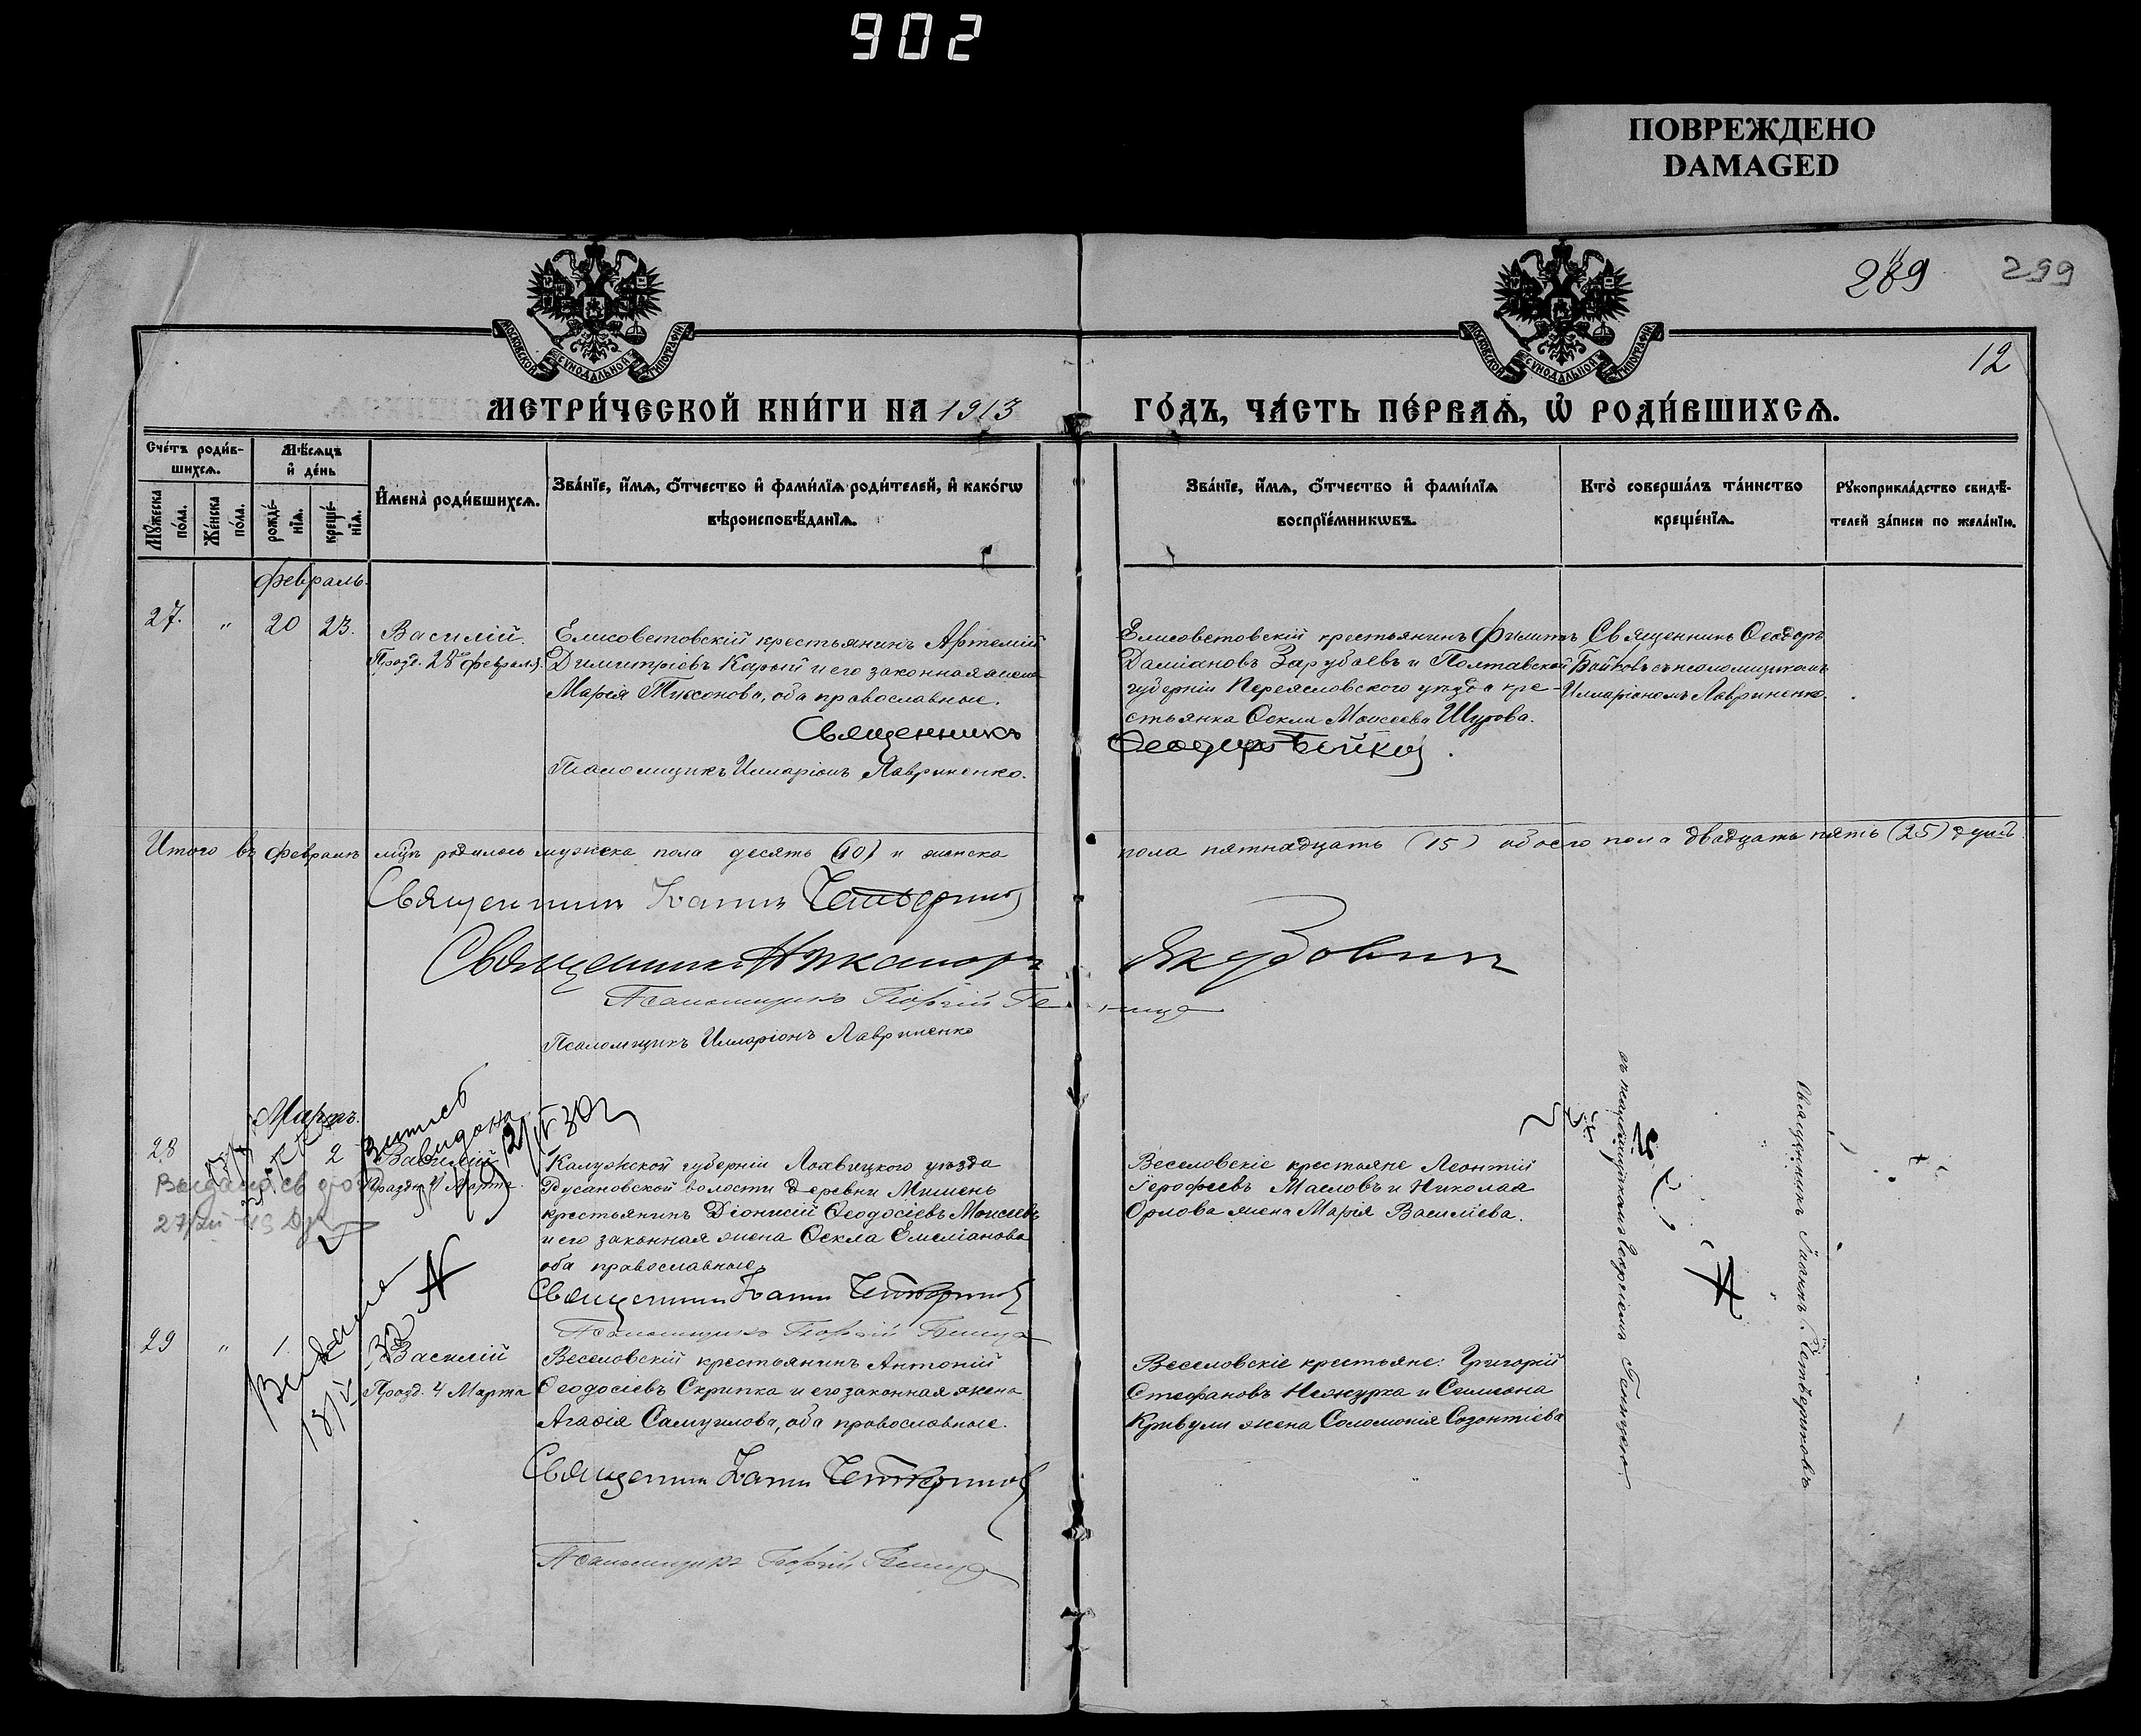 902
ПОВРЕЖДЕНО
DAMAGED
289
299
12
МОСКОВСКОЙ СѴНОДАЛЬНОЙ ТИПОГРАФІИ
МОСКОВСКОЙ СѴНОДАЛЬНОЙ ТИПОГРАФІИ
МЕТРИ́ЧЕСКОЙ КНИ́ГИ НА 1913
ГО́ДЪ, ЧА́СТЬ ПЕ́РВАѦ, Ѽ РОДИ́ВШИХСѦ.
Сче́тъ роди́в-
шихсѧ.
Мꙋ́жеска по́ла.
Же́нска по́ла.
Мѣ́сѧцъ
и҆ де́нь
рожде́-
нїѧ.
креще́-
нїѧ.
И҆мена̀ роди́вшихсѧ.
Зва́нїе, и҆́мѧ, ѻ҆́тчество и҆ фами́лїѧ роди́телей, и҆ како́гѡ
вѣроисповѣ́данїѧ.
Зва́нїе, и҆́мѧ, ѻ҆́тчество и҆ фами́лїѧ
воспрїе́мникѡвъ.
Кто̀ соверша́лъ та́инство
креще́нїѧ.
Рꙋкоприкла́дство свидѣ́-
телей за́писи по жела́нїю.
Февраль.
27.
"
20
23.
Василій.
Празд. 28 февраля.
Елисоветовскій крестьянинъ Артемій
Димитріевъ Карый и его законная жена
Марія Тихонова, оба православные.
Священникъ
Псаломщикъ Илларіонъ Лавриненко.
Елисоветовскій крестьянинъ Филиппъ
Даміановъ Зарубаевъ и Полтавской
губерніи Переясловского уезда кре-
стьянка Ѳекла Моисеева Шурова.
Ѳеодоръ Бойковъ.
Священникъ Ѳеодоръ
Бойковъ съ псаломщикомъ
Илларіономъ Лавриненко.
Итого въ феврале родилось мужска пола десять (10) и женска
пола пятнадцать (15) обоего пола двадцать пять (25) душъ.
Священникъ Іоаннъ Четвериковъ
Священникъ Никаноръ
Якубовичъ
Псаломщикъ Георгій
Псаломщикъ Илларіонъ Лавриненко
Мартъ.
28
2
Василій
Праздн. 4 Марта.
Калужской губерніи Лохвицкого уезда
Русановской волости деревни Мишень
крестьянинъ Діонисій Ѳеодосіевъ Моисеевъ
и его законная жена Ѳекла Емеліанова
оба православные.
Священникъ Іоаннъ Четвериковъ
Псаломщикъ Георгій
Веселовскіе крестьяне Леонтій
Герофеевъ Масловъ и Николая
Орлова жена Марія Василіева.
Священникъ Іоаннъ Четвериковъ
съ псаломщикомъ Георгіемъ
29
"
Василій
Празд. 4 Марта
Веселовскій крестьянинъ Антоній
Ѳеодосіевъ Скрипка и его законная жена
Агафія Самуилова, оба православные.
Священникъ Іоаннъ Четвериковъ
Псаломщикъ Георгій
Веселовскіе крестьяне: Григорій
Стефановъ Нежурка и Симеона
Кривули жена Соломонія Созонтіева